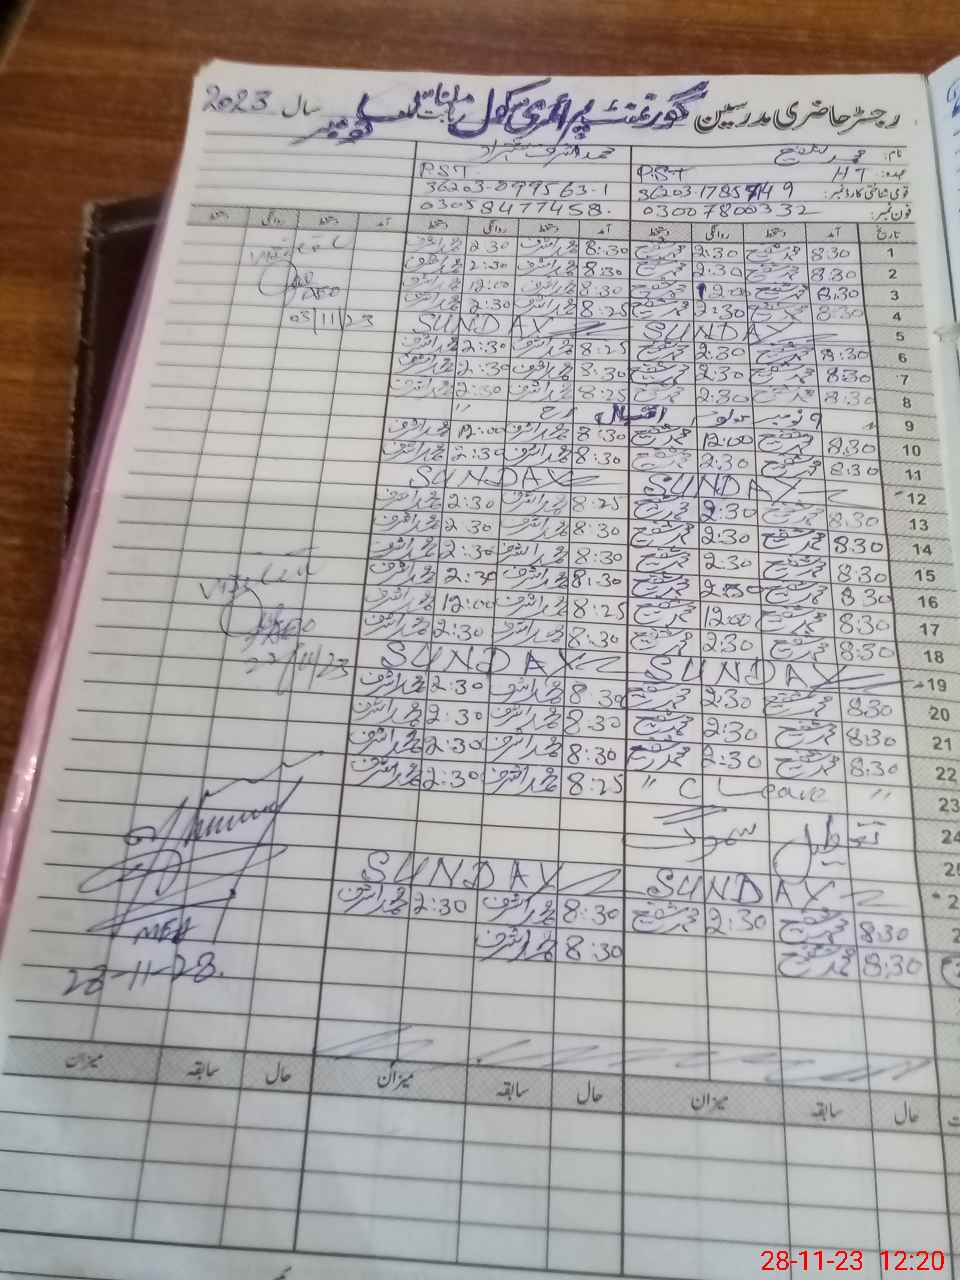 رجسٹر حاضری مدرسین گورنمنٹ پرائمری سکول بابت ماہ نومبر سال 2023
نام: محمد شفیع محمد اشرف شہزاد
عہدہ: HT PST PST
قومی شناختی کارڈ نمبر:
فون نمبر: 03007800332 03058477458
تاریخ آمد دستخط روانگی دستخط آمد دستخط روانگی دستخط آمد دستخط روانگی دستخط
1 8:30 محمد شفیع 2:30 محمد شفیع 8:30 محمد اشرف 2:30 محمد اشرف
2 8:30 محمد شفیع 2:30 محمد شفیع 8:30 محمد اشرف 2:30 محمد اشرف
3 8:30 محمد شفیع 12:00 محمد شفیع 8:30 محمد اشرف 12:00 محمد اشرف
4 8:30 محمد شفیع 2:30 محمد شفیع 8:25 محمد اشرف 2:30 محمد اشرف
5 SUNDAY SUNDAY
6 8:30 محمد شفیع 2:30 محمد شفیع 8:25 محمد اشرف 2:30 محمد اشرف
7 8:30 محمد شفیع 2:30 محمد شفیع 8:30 محمد اشرف 2:30 محمد اشرف
8 8:30 محمد شفیع 2:30 محمد شفیع 8:25 محمد اشرف 2:30 محمد اشرف
9 " 9 نومبر اقبال ڈے "
10 8:30 محمد شفیع 12:00 محمد شفیع 8:30 محمد اشرف 12:00 محمد اشرف
11 8:30 محمد شفیع 2:30 محمد شفیع 8:30 محمد اشرف 2:30 محمد اشرف
12 SUNDAY SUNDAY
13 8:30 محمد شفیع 2:30 محمد شفیع 8:25 محمد اشرف 2:30 محمد اشرف
14 8:30 محمد شفیع 2:30 محمد شفیع 8:30 محمد اشرف 2:30 محمد اشرف
15 8:30 محمد شفیع 2:30 محمد شفیع 8:30 محمد اشرف 2:30 محمد اشرف
16 8:30 محمد شفیع 2:30 محمد شفیع 8:30 محمد اشرف 2:30 محمد اشرف
17 8:30 محمد شفیع 12:00 محمد شفیع 8:25 محمد اشرف 12:00 محمد اشرف
18 8:30 محمد شفیع 2:30 محمد شفیع 8:30 محمد اشرف 2:30 محمد اشرف
19 SUNDAY SUNDAY
20 8:30 محمد شفیع 2:30 محمد شفیع 8:30 محمد اشرف 2:30 محمد اشرف
21 8:30 محمد شفیع 2:30 محمد شفیع 8:30 محمد اشرف 2:30 محمد اشرف
22 8:30 محمد شفیع 2:30 محمد شفیع 8:30 محمد اشرف 2:30 محمد اشرف
23 " C Leave " 8:25 محمد اشرف 2:30 محمد اشرف
24 تعطیل
SUNDAY SUNDAY
8:30 محمد شفیع 2:30 محمد شفیع 8:30 محمد اشرف 2:30 محمد اشرف
8:30 محمد شفیع 8:30 محمد اشرف
Visited
AEO
03/11/23
Visited
AEO
23/11/23
MEA
28-11-23.
حال سابقہ میزان حال سابقہ میزان حال سابقہ میزان
28-11-23 12:20